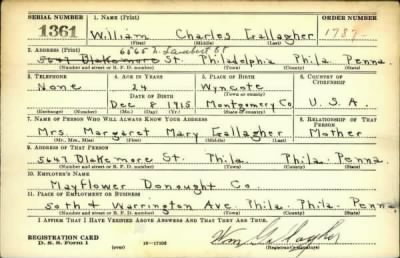 SERIAL NUMBER 1. NAME (Print) ORDER NUMBER
1361 William Charles Gallagher 1787
(First) (Middle) (Last)
6565 N. Lambert St
2. ADDRESS (Print)
5647 Blakemore St. Philadelphia Phila. Penna.
(Number and street or R. F. D. number) (Town) (County) (State)
3. TELEPHONE 4. AGE IN YEARS 5. PLACE OF BIRTH 6. COUNTRY OF CITIZENSHIP
None 24 Wyncote
DATE OF BIRTH (Town or county)
Dec 8 1915 Montgomery Co. U.S.A.
(Exchange) (Number) (Mo.) (Day) (Yr.) (State or country)
7. NAME OF PERSON WHO WILL ALWAYS KNOW YOUR ADDRESS 8. RELATIONSHIP OF THAT PERSON
Mrs. Margaret Mary Gallagher Mother
(Mr., Mrs., Miss) (First) (Middle) (Last)
9. ADDRESS OF THAT PERSON
5647 Blakemore St. Phila. Phila. Penna
(Number and street or R. F. D. number) (Town) (County) (State)
10. EMPLOYER'S NAME
Mayflower Donought Co.
11. PLACE OF EMPLOYMENT OR BUSINESS
50th & Warrington Ave Phila. Phila. Penna
(Number and street or R. F. D. number) (Town) (County) (State)
I AFFIRM THAT I HAVE VERIFIED ABOVE ANSWERS AND THAT THEY ARE TRUE.
REGISTRATION CARD
D. S. S. Form 1 (over) Wm Gallagher